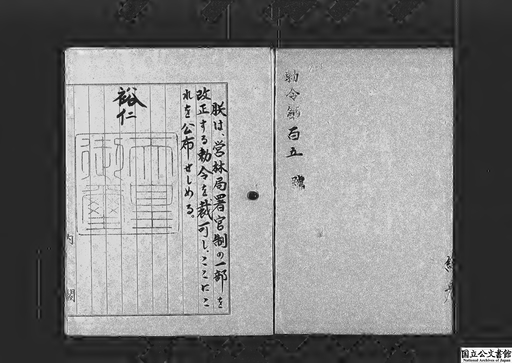 勅令第百五号
朕は、営林局署官制の一部を
改正する勅令を裁可し、ここにこ
れを公布せしめる。
裕仁
天皇
御璽
内閣
国立公文書館
National Archives of Japan